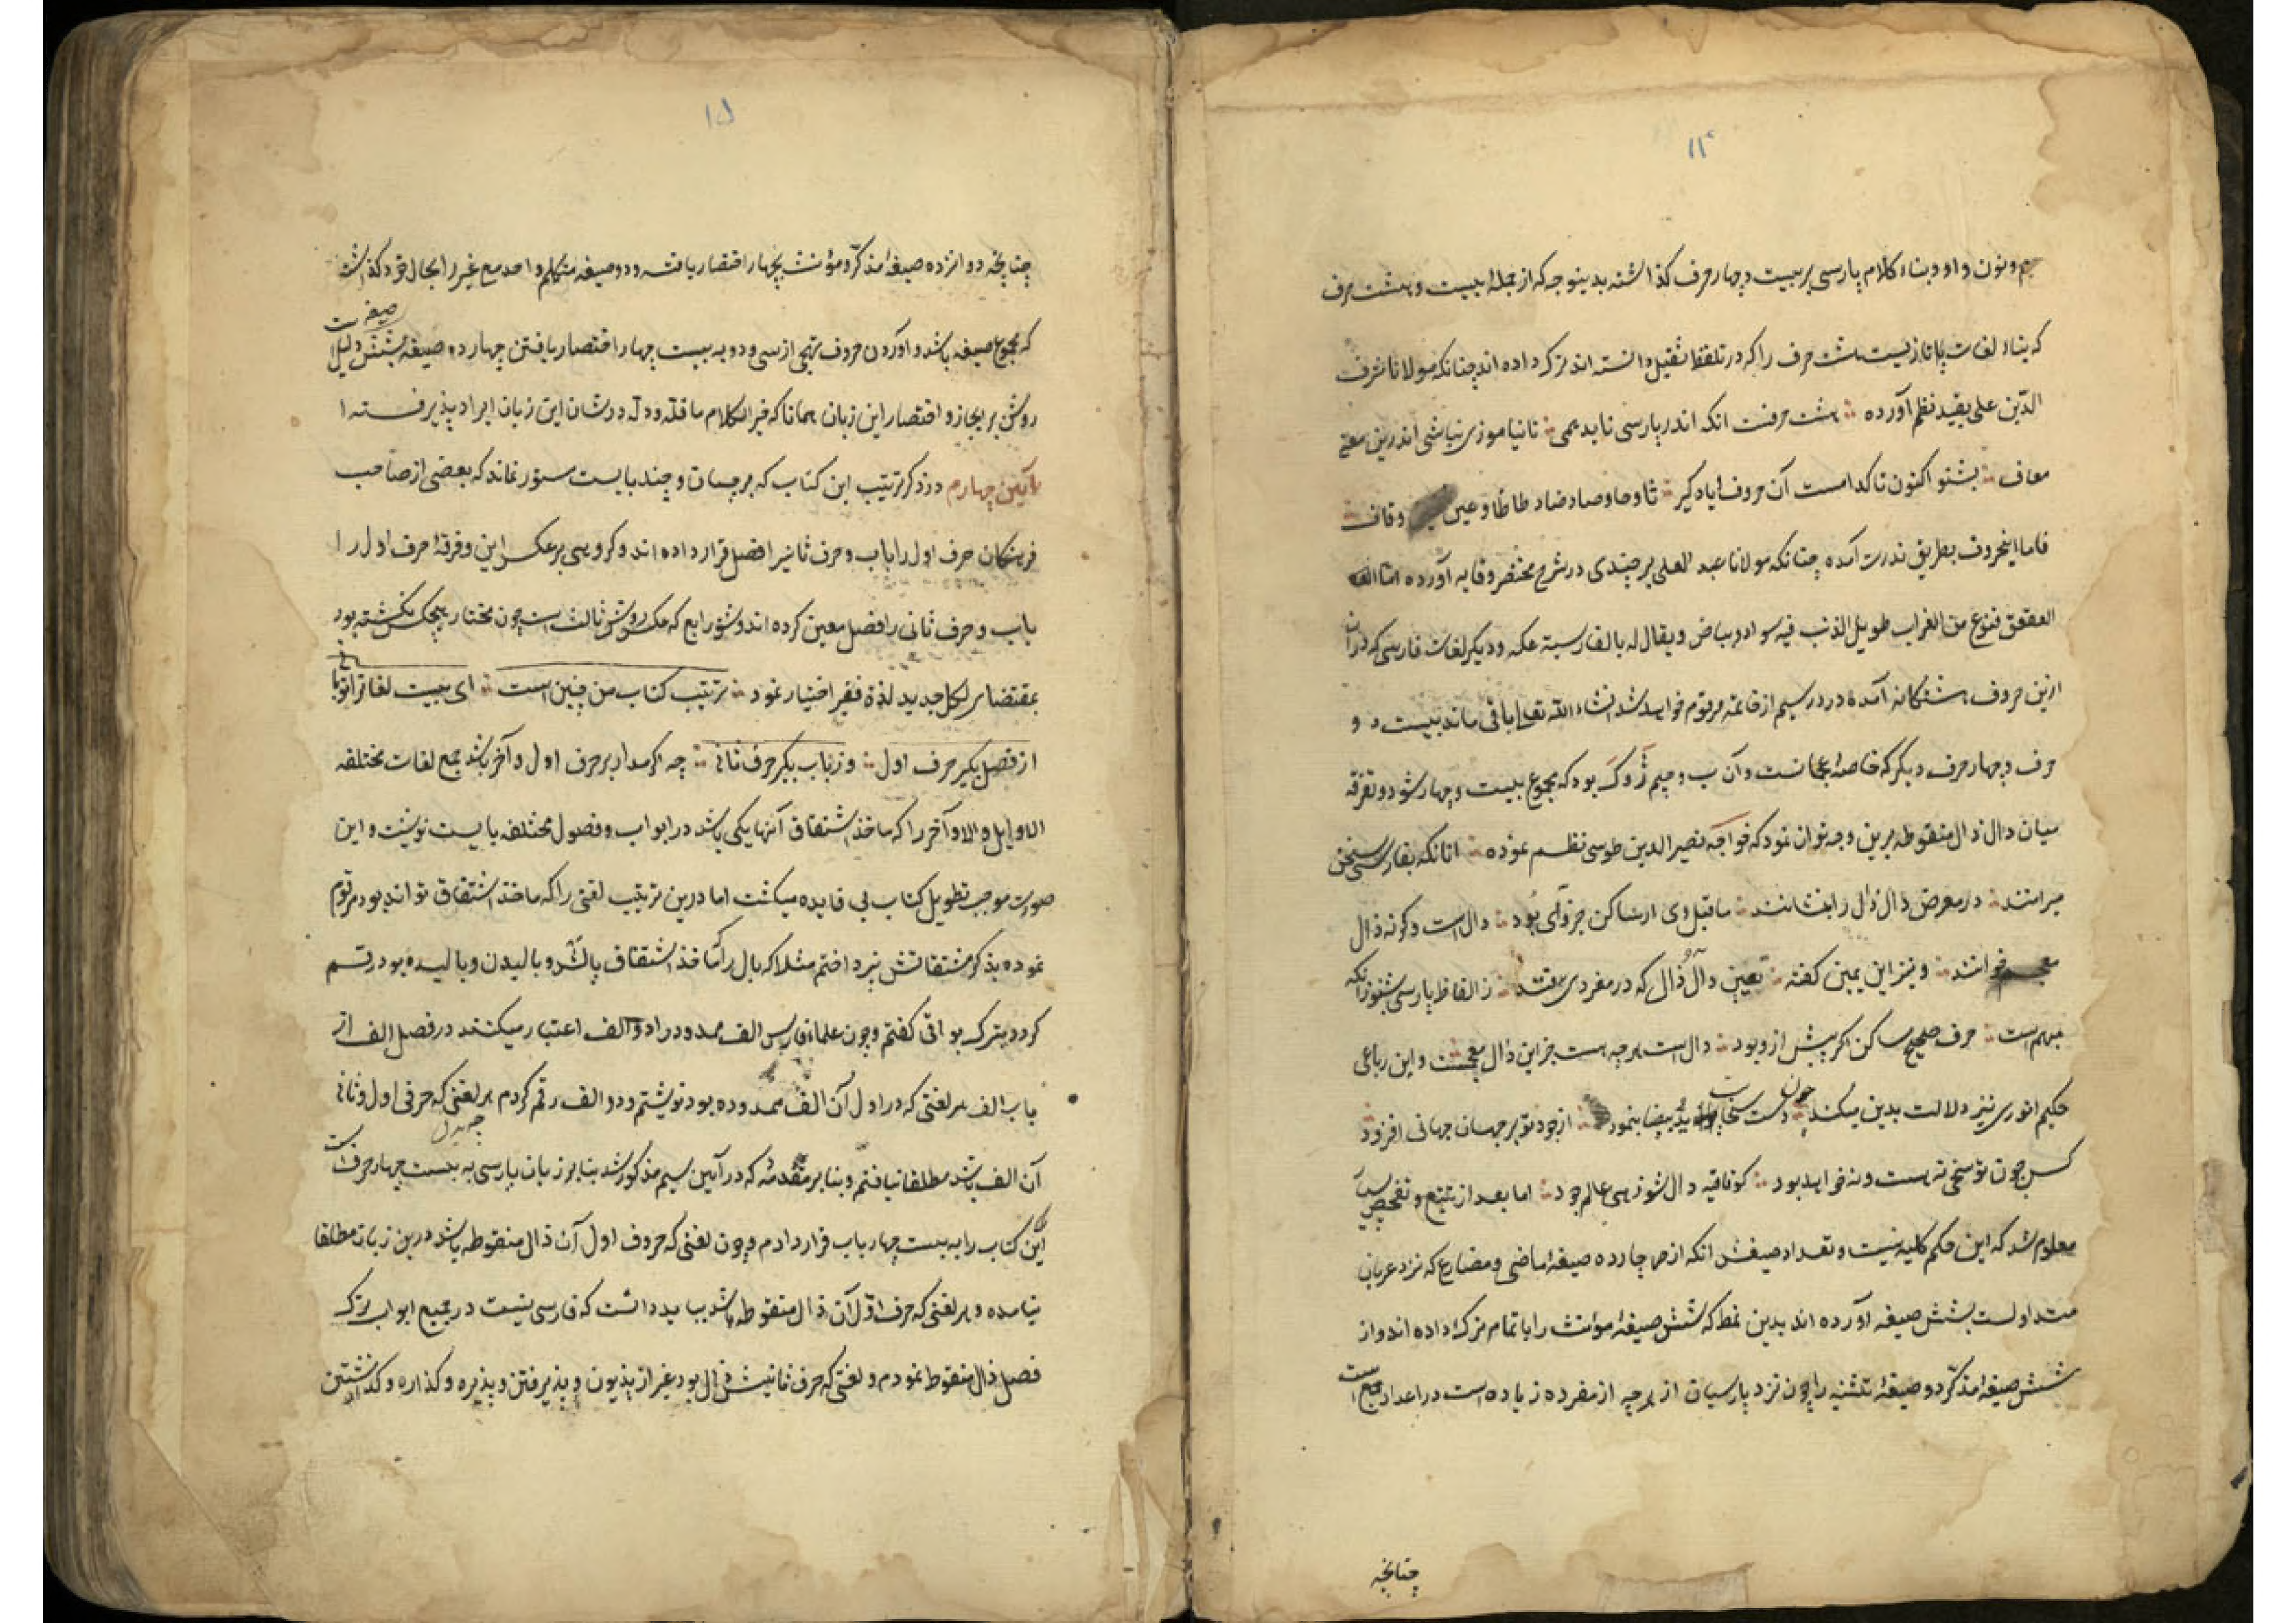 ۱۴
میم و نون و واو و بناء کلام پارسی بر بیست و چهار حرف گذاشته بدینوجه که از جمله بیست و هشت حرف
که بناء لغات هشت حرف را که در تلفظ ثقیل دانسته اند ترک داده اند چنانکه مولانا شرف
الدّین علی بقید نظم آورده هشت حرفست انکه اندر پارسی ناید همی تا نیاموزی نباشی اندرین معنی
معاف بشنو اکنون تا کدامست آن حروف و یاد گیر ثا و حا و صاد و ضاد و طا ظا و عین و قاف
فاما اینحروف بطریق ندرت آمده چنانکه مولانا عبد العلی برجندی در شرح مختصر وقایه آورده اما
العقعق فنوع من الغراب طویل الذنب فیه سواد و بیاض و یقال له بالفارسیة عکه و دیگر لغات فارسی که دران
ازین حروف هشتگانه آمده در در سیم از خاتمه مرقوم خواهد شد انشاء الله تعالی باقی ماند بیست و
حرف و چهار حرف دیگر که خاصه عجمانست و آن پ و چیم ژ و گ بود که مجموع بیست و چهار شود و تفرقه
میان دال ذال منقوطه برین وجه توان نمود که خواجه نصیر الدین طوسی نظم نموده انانکه بفارسی سخن
میرانند در معرض دال ذال را بنشانند ماقبل وی ار ساکن جز وای بود دال است وگرنه ذال
معجم خوانند و نیز ابن یمین گفته تعیین دال و ذال که در مفردی فتد ز الفاظ پارسی بشنو زانکه
مبهم است حرف صحیح ساکن اگر پیش ازو بود دال است هرچه هست جز این ذال معجمست و این رباعی
حکیم انوری نیز دلالت بدین میکند دست سخا چون ید بیضا بنمود از جود تو بر جهان جهانی افزود
کس چون تو سخی نه هست و نه خواهد بود گو قافیه دال شو زهی عالم جود اما بعد از تتبع و تفحص بسیار
معلوم شد که این حکم کلیه نیست و تعداد صیغش انکه از هر چارده صیغه ماضی و مضارع که نزد عربان
متداولست بشش صیغه آورده اند بدین نمط که شش صیغه مؤنث را با تمام ترک داده اند و از
شش صیغه مذکّر دو صیغه تثنیه را چون نزد پارسیان از هرچه از مفرده زیاده است در اعداد جمع است
چنانچه
۱۵
چنانچه دوانزده صیغه مذکّر و مؤنث بچهار اقتصار یافته و دو صیغه متکلم واحد مع غیر را بحال خود گذاشت
که مجموع شش صیغه باشد و آوردن حروف تهجی از سی و دو به بیست چهار اختصار یافتن چهارده صیغه بشش صیغه دلیل است
روشن بر ایجاز و اختصار این زبان همانا که خیر الکلام ما قلّ و دلّ در شان این زبان ایراد پذیرفته
آیین چهارم در ذکر ترتیب این کتاب که بر چسان و چند بابست مستور نماند که بعضی از صاحب
فرهنگان حرف اول را باب و حرف ثانی را فصل قرار داده اند و گروهی برعکس این و فرقه حرف اول را
باب و حرف ثانی را فصل معین کرده اند و شق رابع که عکس شق ثالث است چون مختار هیچکس نگشته بود
بمقتضای لکل جدید لذة فقیر اختیار نمود ترتیب کتاب من چنین است ای بیت لغاتراتو یابی
از فصل بگیر حرف اول وز باب بگیر حرف ثانی چه اگر مدار بر حرف اول و آخر باشد جمع لغات مختلفه
الاوایل و الاواخر را که ماخذ اشتقاق آنها یکی باشد در ابواب و فصول مختلفه بایست نوشت و این
صورت موجب تطویل کتاب بی فایده میگشت اما درین ترتیب لغتی را که ماخذ اشتقاق تواند بود مرقوم
نموده بذکر مشتقاتش نپرداختم مثلا که بال را که ماخذ اشتقاق بالش و بالیدن و بالیده بود رقم
گردد بترک بواقی گفتم و چون علماء فارس الف ممدود را دو الف اعتبار میکنند در فصل الف از
باب الف هر لغتی که در اول آن الف ممدوده بود نوشتم و دو الف رقم کردم هر لغتی که حرف اول و ثانی
آن الف باشد مطلقا نیافتم و بنا بر مقدمه که در آیین سیم مذکور شد بنابر زبان پارسی به بیست چهار حرف است
این کتاب را به بیست چهار باب قرار دادم و چون لغتی که حروف اول آن ذال منقوطه باشد درین زبان مطلقا
نیامده و هر لغتی که حرف اوّل آن ذال منقوطه باشد بباید دانست که فارسی نیست در جمیع ابواب ترک
فصل ذال منقوط نمودم و لغتی که حرف ثانیش ذال بود غیر از پذیون و پذیرفتن و پذیره و گذاره و گذشتن